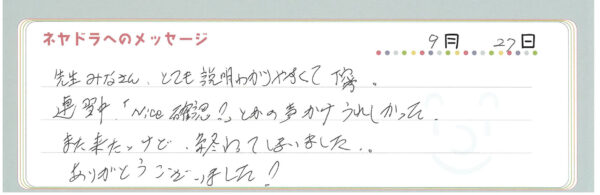 ネヤドラへのメッセージ
9月 27日
先生みなさん、とても説明わかりやすくて丁寧。
運転中、「Nice確認!」とかの声かけうれしかった。
また来たいけど、終わってしまいました。。
ありがとうございました!